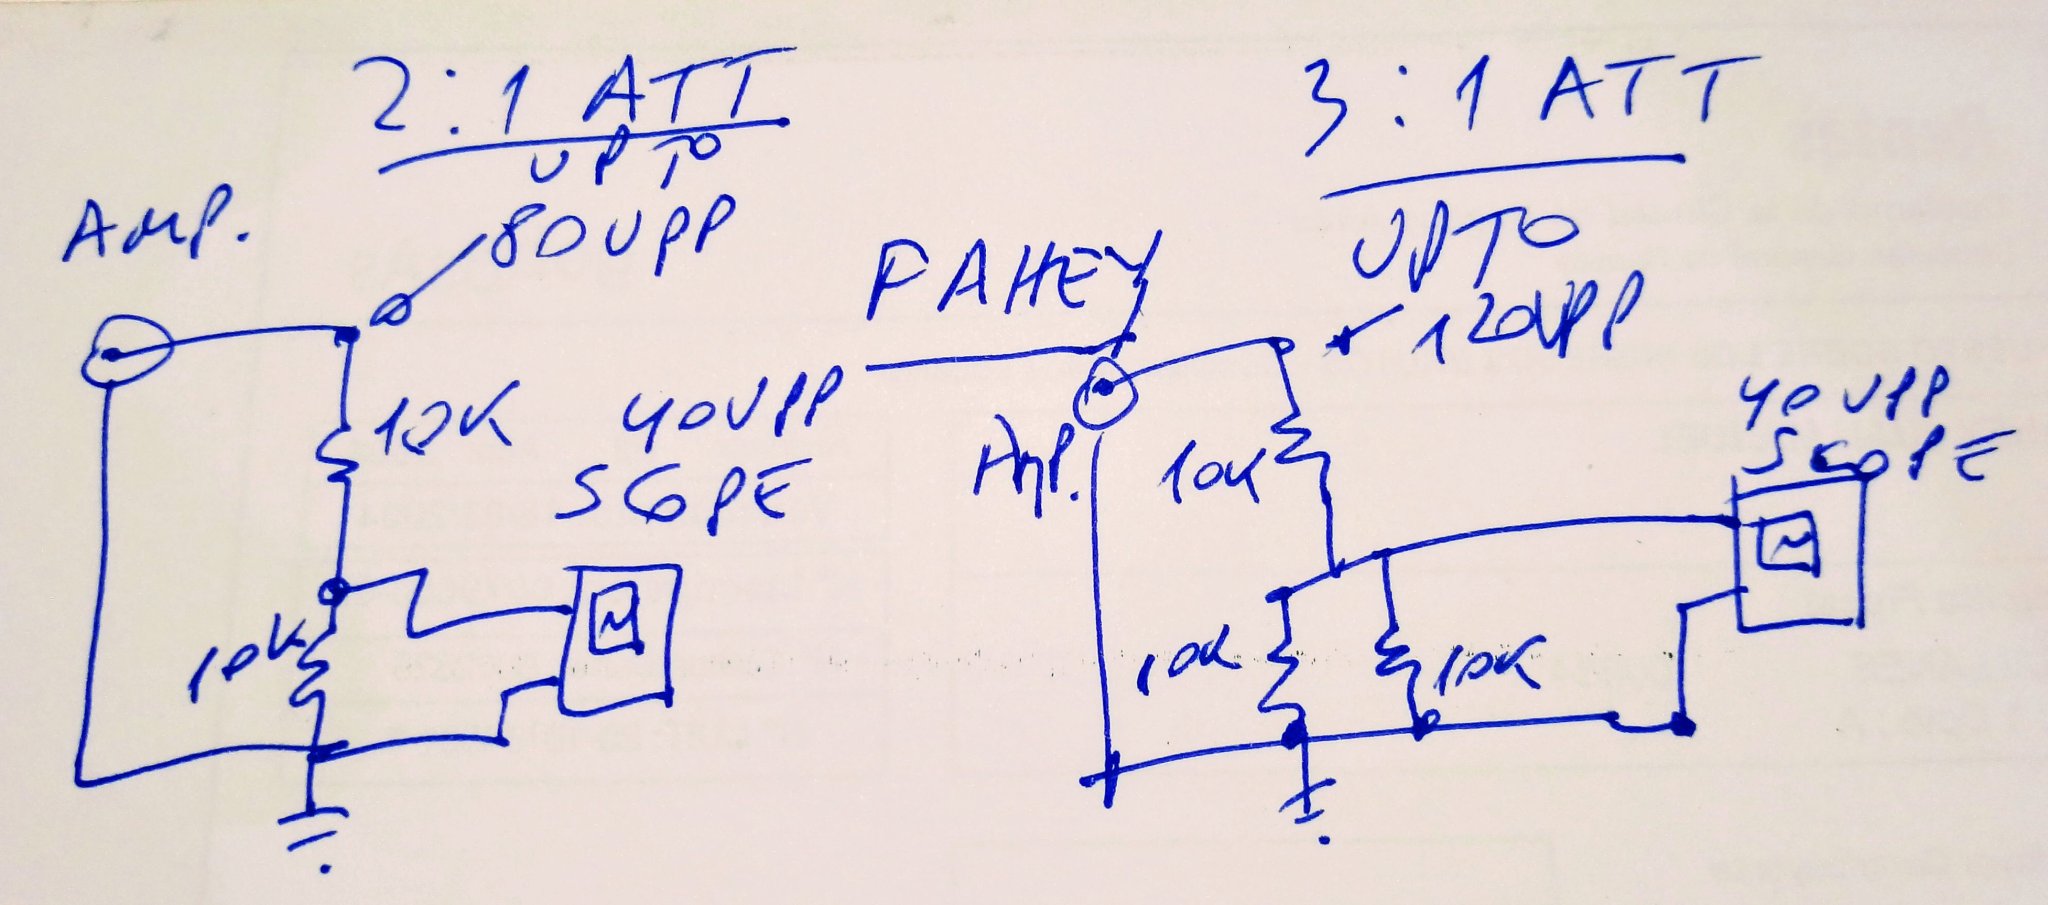 2:1 ATT
UP TO
80VPP
AMP.
10K
40VPP
SCOPE
10K
FAHEY
3:1 ATT
UP TO
120VPP
AMP.
10K
40VPP
SCOPE
10K
10K